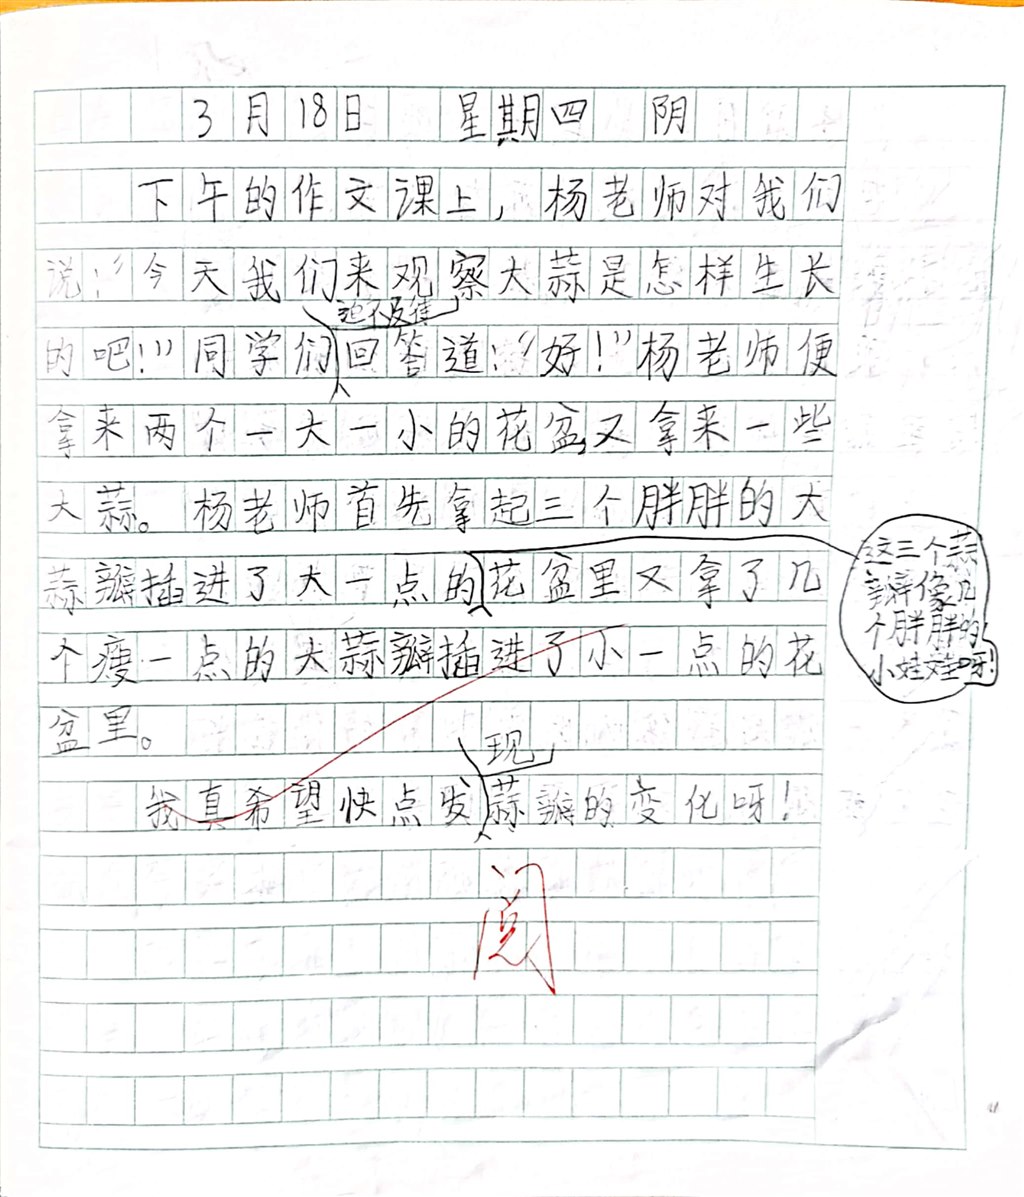 3月18日 星期四 阴
下午的作文课上，杨老师对我们
说：“今天我们来观察大蒜是怎样生长
迫不及待
的吧！”同学们回答道：“好！”杨老师便
拿来两个一大一小的花盆，又拿来一些
大蒜。杨老师首先拿起三个胖胖的大
蒜瓣插进了大一点的花盆里又拿了几
个瘦一点的大蒜瓣插进了小一点的花
盆里。
这三个蒜
瓣像几
个胖胖的
小娃娃呀！
现
我真希望快点发蒜瓣的变化呀！
阅